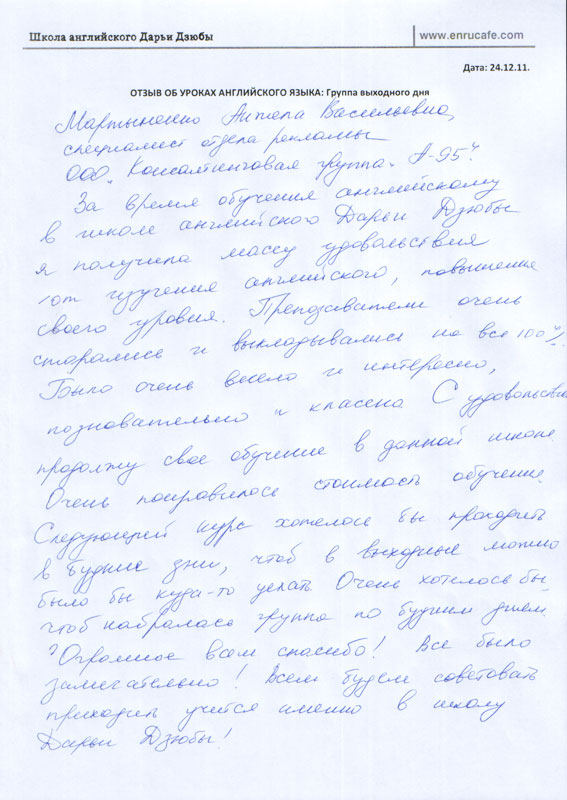 Школа английского Дарьи Дзюбы
www.enrucafe.com
Дата: 24.12.11.
ОТЗЫВ ОБ УРОКАХ АНГЛИЙСКОГО ЯЗЫКА: Группа выходного дня
Мартыненко Васильевна,
специалист отдела рекламы
ООО „Консалтинговая группа „А-95“
За время обучения английскому
в школе английского Дарьи Дзюбы
я получила массу удовольствия
от изучения английского, повышения
своего уровня. Преподаватели очень
старались и выкладывались на все 100%.
Было очень весело и интересно,
познавательно и классно. С удовольствием
продолжу свое обучение в данной школе.
Очень понравилась стоимость обучения.
Следующий курс хотелось бы проходить
в будние дни, чтоб в выходные можно
было бы куда-то уехать. Очень хотелось бы
чтоб набралась группа по будним дням
Огромное всем спасибо! Все было
замечательно! Всем будем советовать
приходить учится именно в школу
Дарьи Дзюбы!